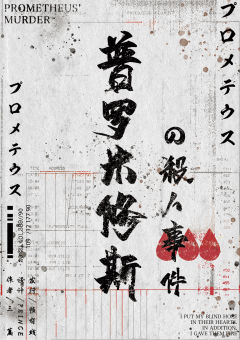 PROMETHEUS'
MURDER
プロメテウス
普罗米修斯
の殺人事件
プロメテウス
I PUT MY BLIND HOPE
IN THEIR HEARTS.
IN ADDITION,
I GAVE THEM FIRE